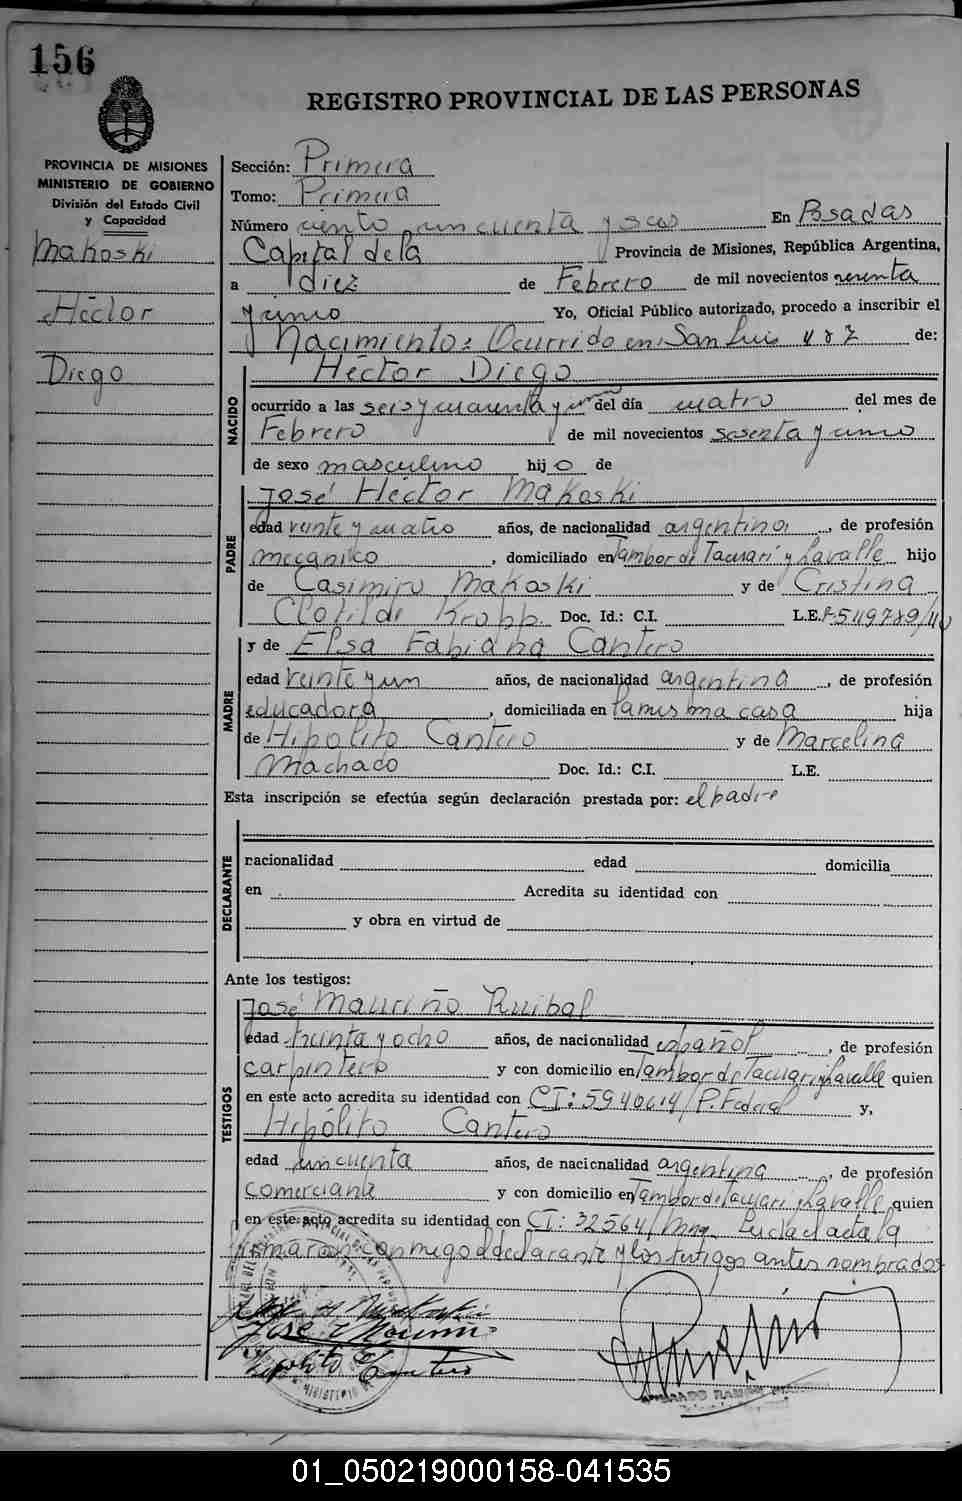 156
REGISTRO PROVINCIAL DE LAS PERSONAS
PROVINCIA DE MISIONES
MINISTERIO DE GOBIERNO
División del Estado Civil
y Capacidad
Makoski
Héctor
Diego
Sección: Primera
Tomo: Primera
Número ciento cincuenta y seis En Posadas
Capital de la Provincia de Misiones, República Argentina,
a diez de Febrero de mil novecientos sesenta
y uno Yo, Oficial Público autorizado, procedo a inscribir el
Nacimiento: Ocurrido en: San Luis 487 de:
NACIDO
Héctor Diego
ocurrido a las seis y cuarenta y del día cuatro del mes de
Febrero de mil novecientos sesenta y uno
de sexo masculino hijo de
PADRE
José Héctor Makoski
edad veinte y cuatro años, de nacionalidad argentina, de profesión
mecánico, domiciliado en Tambor de Tacuarí y Lavalle hijo
de Casimiro Makoski y de Cristina
Clotilde Kropp. Doc. Id.: C.I. L.E.
MADRE
y de Elsa Fabiana Cantero
edad veinte y un años, de nacionalidad argentina, de profesión
educadora, domiciliada en la misma casa hija
de Hipólito Cantero y de Marcelina
Machado Doc. Id.: C.I. L.E.
Esta inscripción se efectúa según declaración prestada por: el padre
DECLARANTE
nacionalidad edad domicilia
en Acredita su identidad con
y obra en virtud de
Ante los testigos:
TESTIGOS
José Mauriño Ruibal
edad treinta y ocho años, de nacionalidad español, de profesión
carpintero y con domicilio en Tambor de Tacuarí y Lavalle quien
en este acto acredita su identidad con CI: 5940614/P. Federal y,
Hipólito Cantero
edad cincuenta años, de nacionalidad argentina, de profesión
comerciante y con domicilio en Tambor de Tacuarí y Lavalle quien
en este acto acredita su identidad con CI: 32564/Mnes. Leída el acta la
firmaron conmigo el declarante y los testigos antes nombrados
Hipólito Cantero
01_050219000158-041535